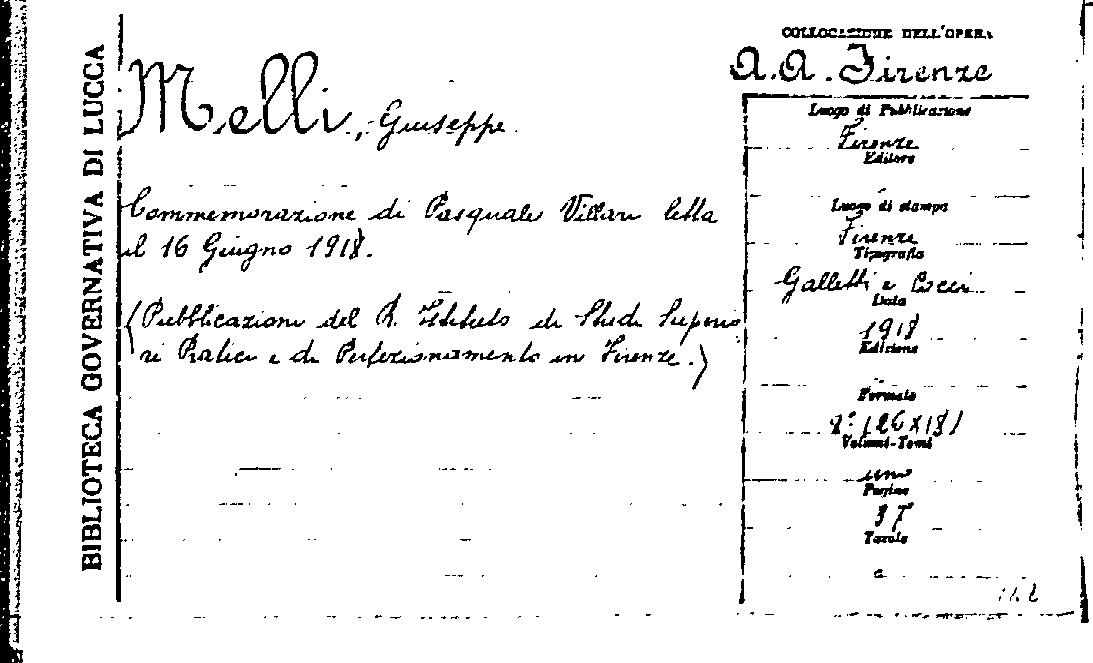 BIBLIOTECA GOVERNATIVA DI LUCCA
Melli, Giuseppe.
Commemorazione di Pasquale Villari letta
il 16 Giugno 1918.
(Pubblicazioni del R. Istituto di Studi Superio
ri Pratici e di Perfezionamento in Firenze.)
COLLOCAZIONE DELL'OPERA
A.A. Firenze
Luogo di Pubblicazione
Firenze
Editore
Luogo di stampa
Firenze
Tipografia
Galletti e Cocci
Data
1918
Edizione
Formato
8° (26x18)
Volumi-Tomi
uno
Pagine
37
Tavole